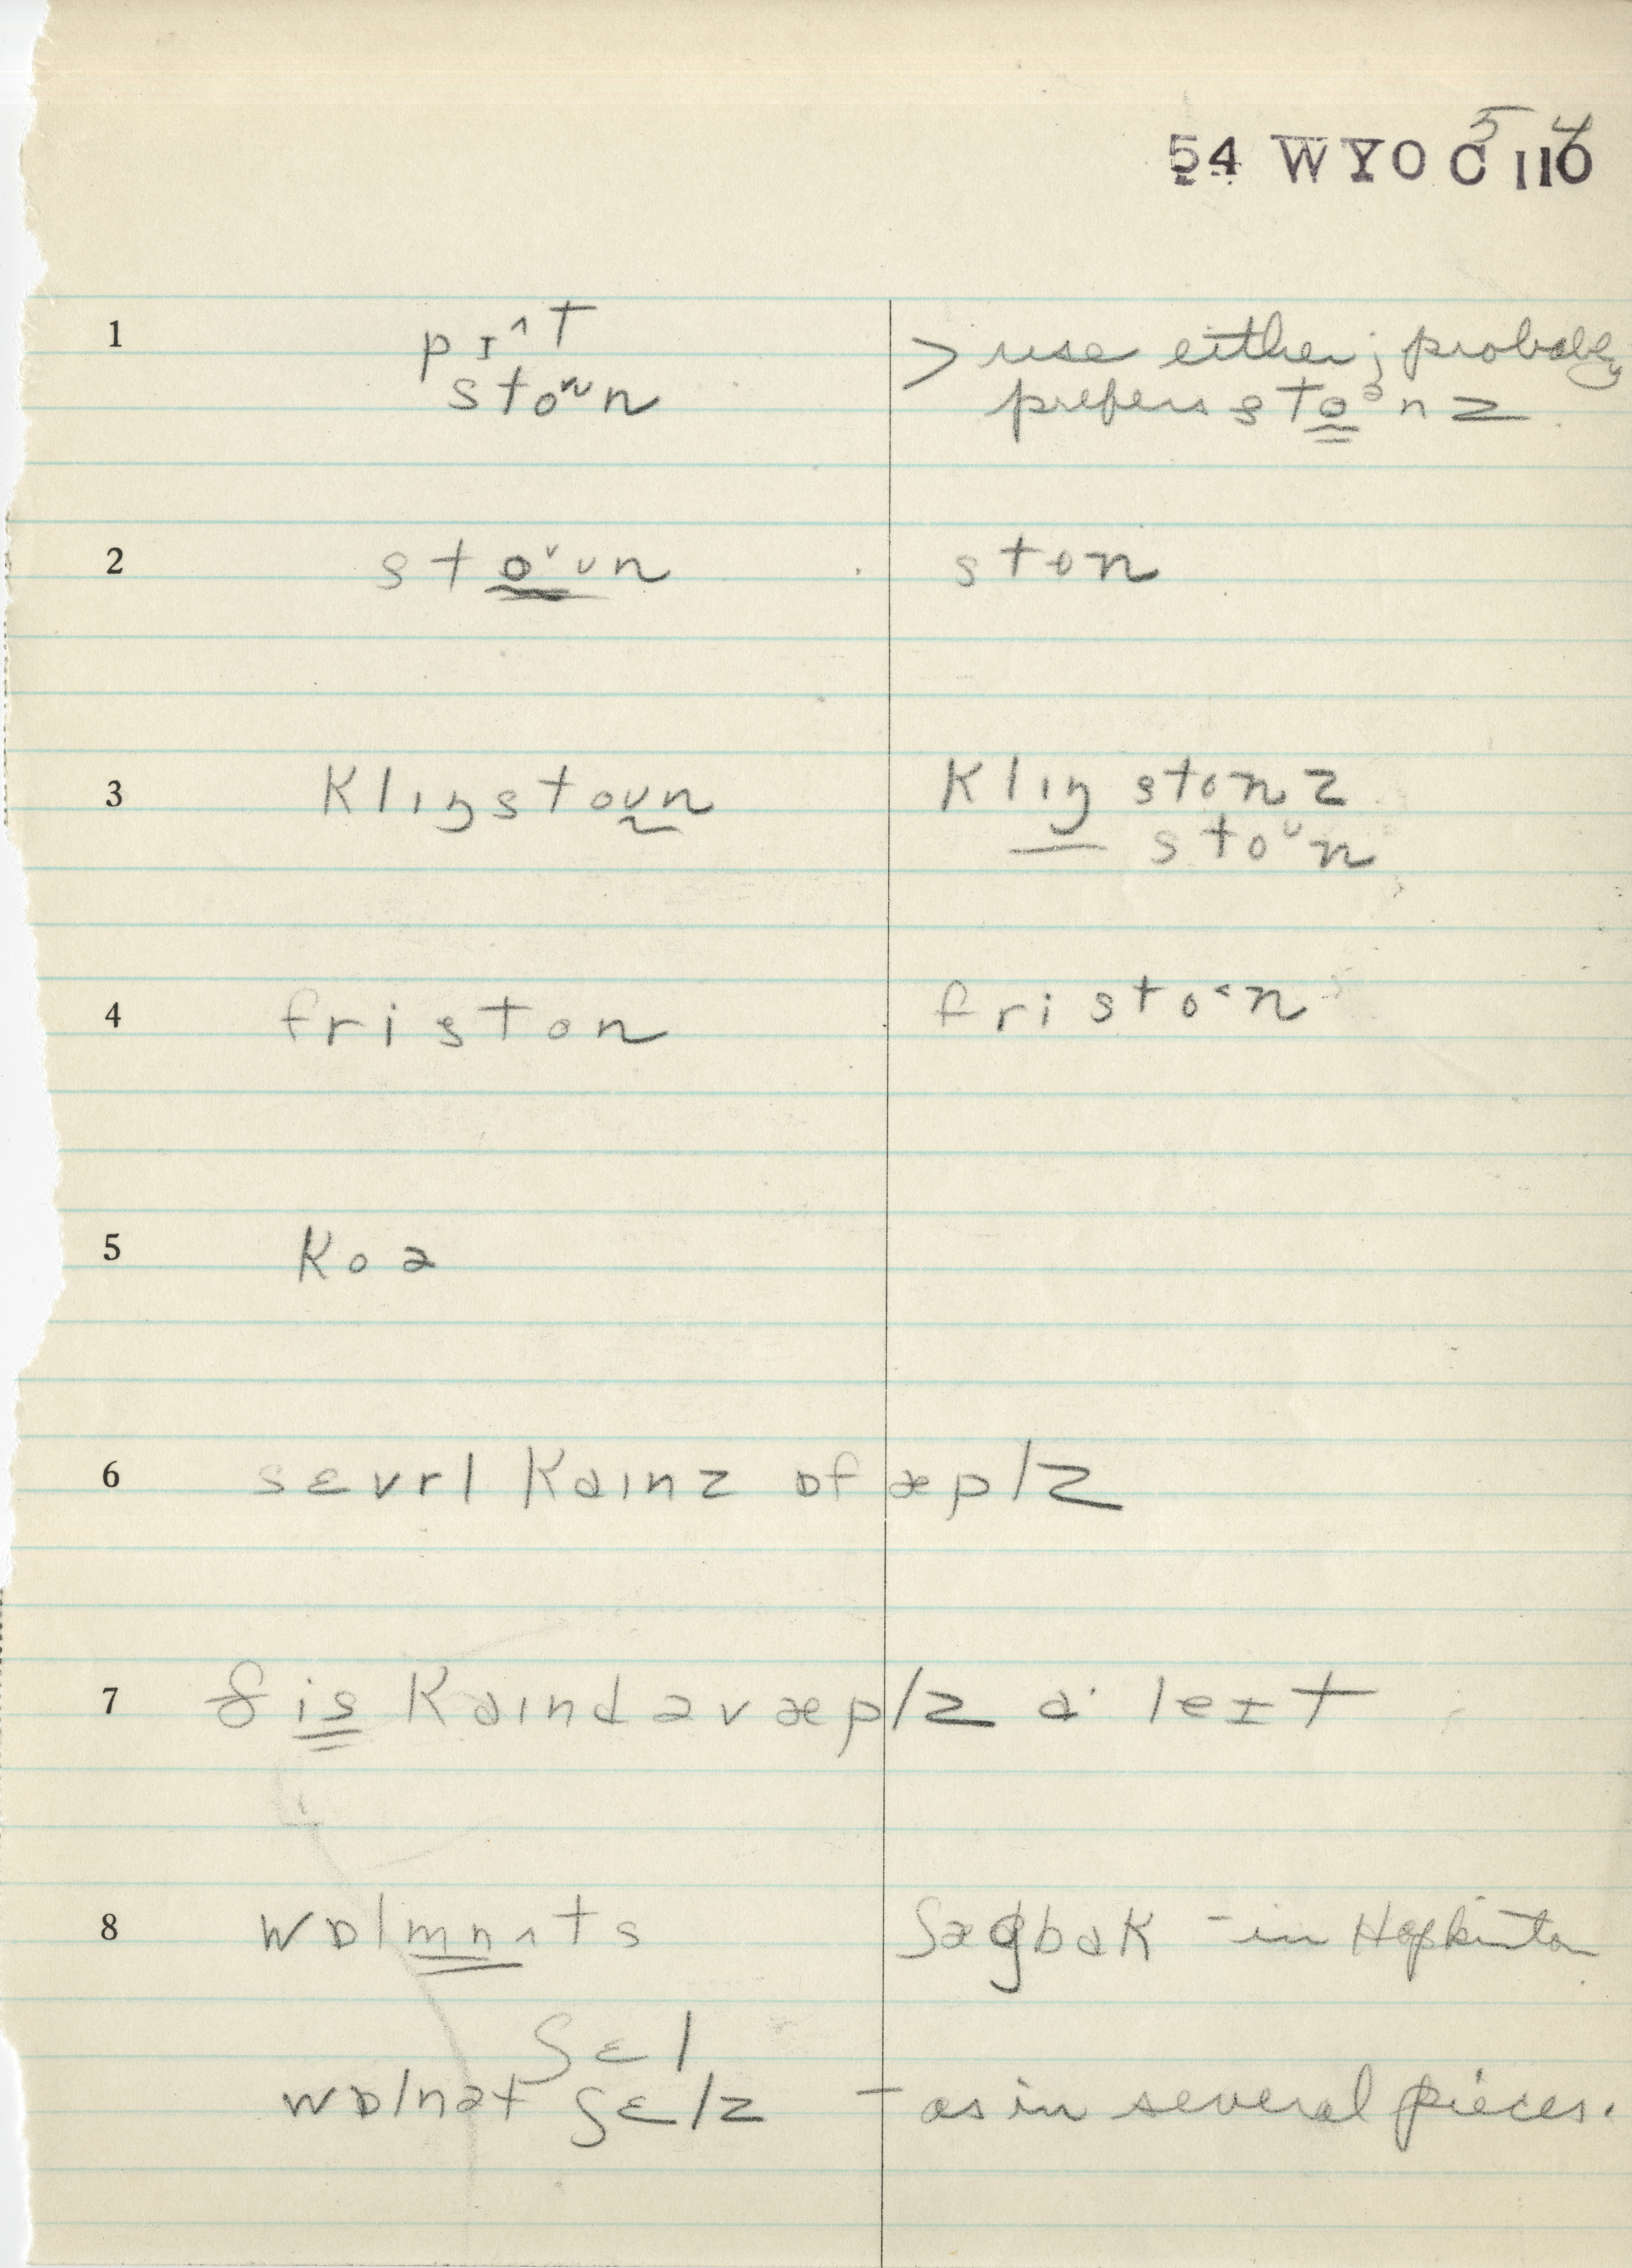 5 4
54 WYO C 110
1 pɪ^t > use either; probably
stoʊn prefers stoᵊnz
2 stoʊn ston
3 klɪŋstoʊn klɪŋ stonz
— stoʊn
4 friston fri sto˂n
5 koə
6 sɛvrl kaɪnz ɒf æplz
7 ðis kaɪnd əv æplz a· leɪt
8 wɒlmnʌts ʃægbak - in Hopkinton
ʃɛl
wɒlnət ʃɛlz - as in several pieces.